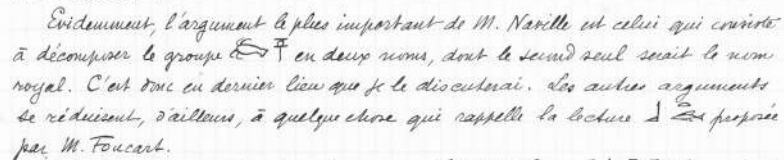 Evidemment, l'argument le plus important de M. Naville est celui qui consiste
à décomposer le groupe en deux noms, dont le second seul serait le nom
royal. C'est donc en dernier lieu que je le discuterai. Les autres arguments
se réduisent, d'ailleurs, à quelque chose qui rappelle la lecture proposée
par M. Foucart.